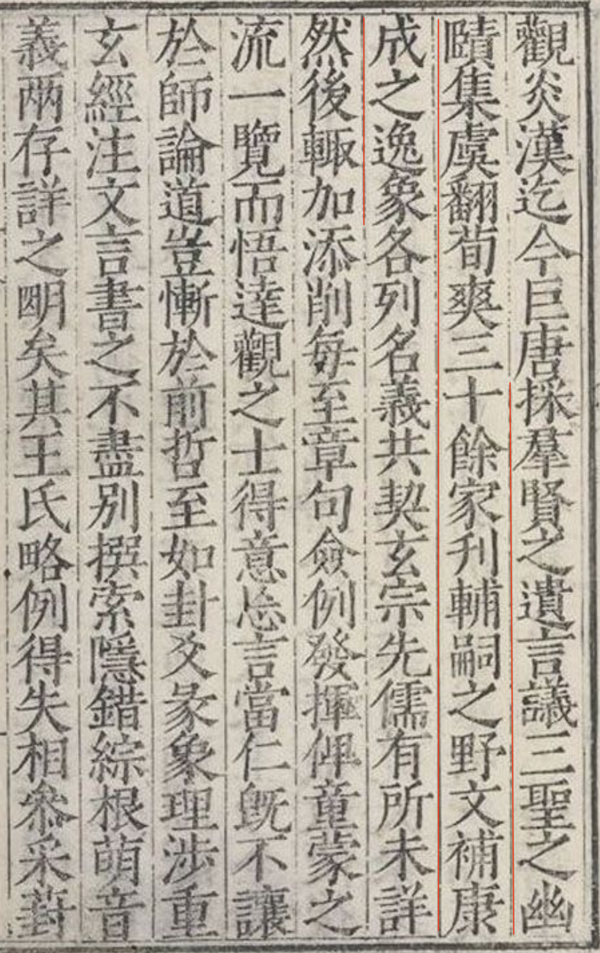 觀炎漢迄今巨唐採羣賢之遺言議三聖之幽
賾集虞翻荀爽三十餘家刋輔嗣之野文補康
成之逸象各列名義共契玄宗先儒有所未詳
然後輙加添削每至章句僉例發揮俾童蒙之
流一覽而悟達觀之士得意忘言當仁旣不讓
於師論道豈慚於前哲至如卦爻彖象理涉重
玄經注文言書之不盡別撰索隱錯綜根萌音
義兩存詳之明矣其王氏略例得失相叅采葑